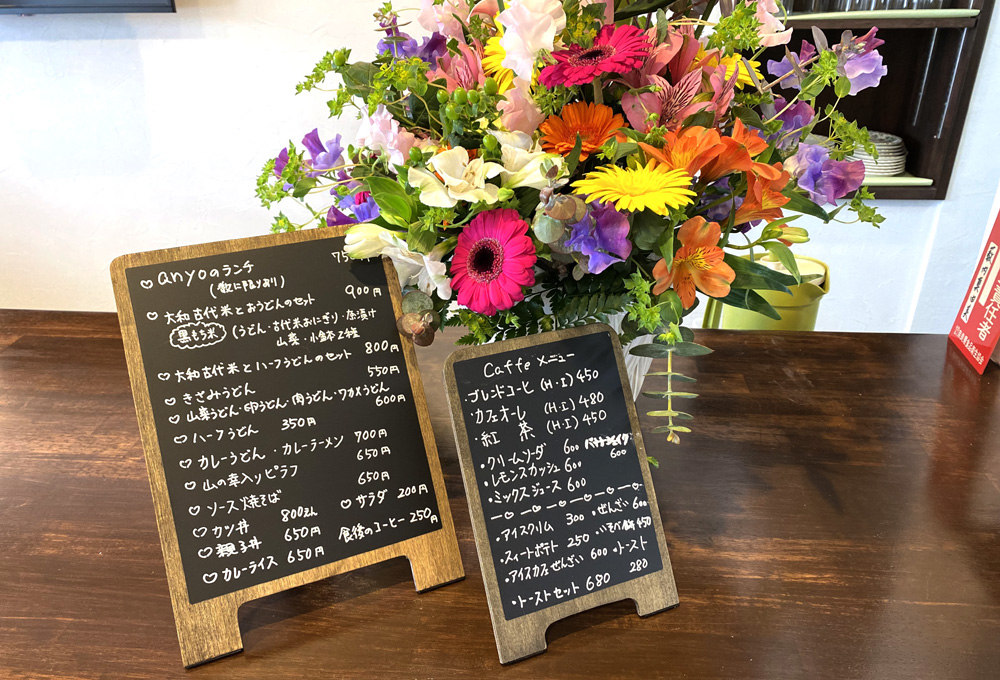 ♡ anyoのランチ 75
(数に限りあり)
♡ 大和古代米とおうどんのセット 900円
黒もち米 (うどん・古代米おにぎり・唐漬け
山菜・小鉢2種
♡ 大和古代米とハーフうどんのセット 800円
♡ きざみうどん 550円
♡ 山菜うどん・卵うどん・肉うどん・ワカメうどん
600円
♡ ハーフうどん 350円
♡ カレーうどん・カレーラーメン 700円
♡ 山の幸入りピラフ 650円
♡ ソース焼そば 650円
♡ カツ丼 800えん ♡ サラダ 200円
♡ 親子丼 650円 食後のコーヒー 250円
♡ カレーライス 650円
Caffe メニュー
・ブレンドコーヒ (H・I) 450
・カフェオーレ (H・I) 480
・紅 茶 (H・I) 450
・クリームソーダ 600
・レモンスカッシュ 600 600
・ミックスジュース 600
・アイスクリム 300 ・ぜんざい 600
・スィートポテト 250 450
・アイスカフェぜんざい 600 ・トースト
280
・トーストセット 680
責任者